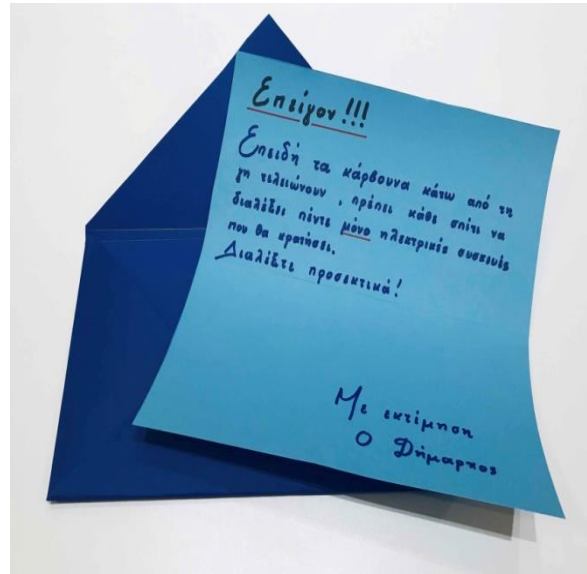 Επείγον!!!
Επειδή τα κάρβουνα κάτω από τη
γη τελειώνουν, πρέπει κάθε σπίτι να
διαλέξει πέντε μόνο ηλεκτρικές συσκευές
που θα κρατήσει.
Διαλέξτε προσεκτικά!
Με εκτίμηση
Ο Δήμαρχος